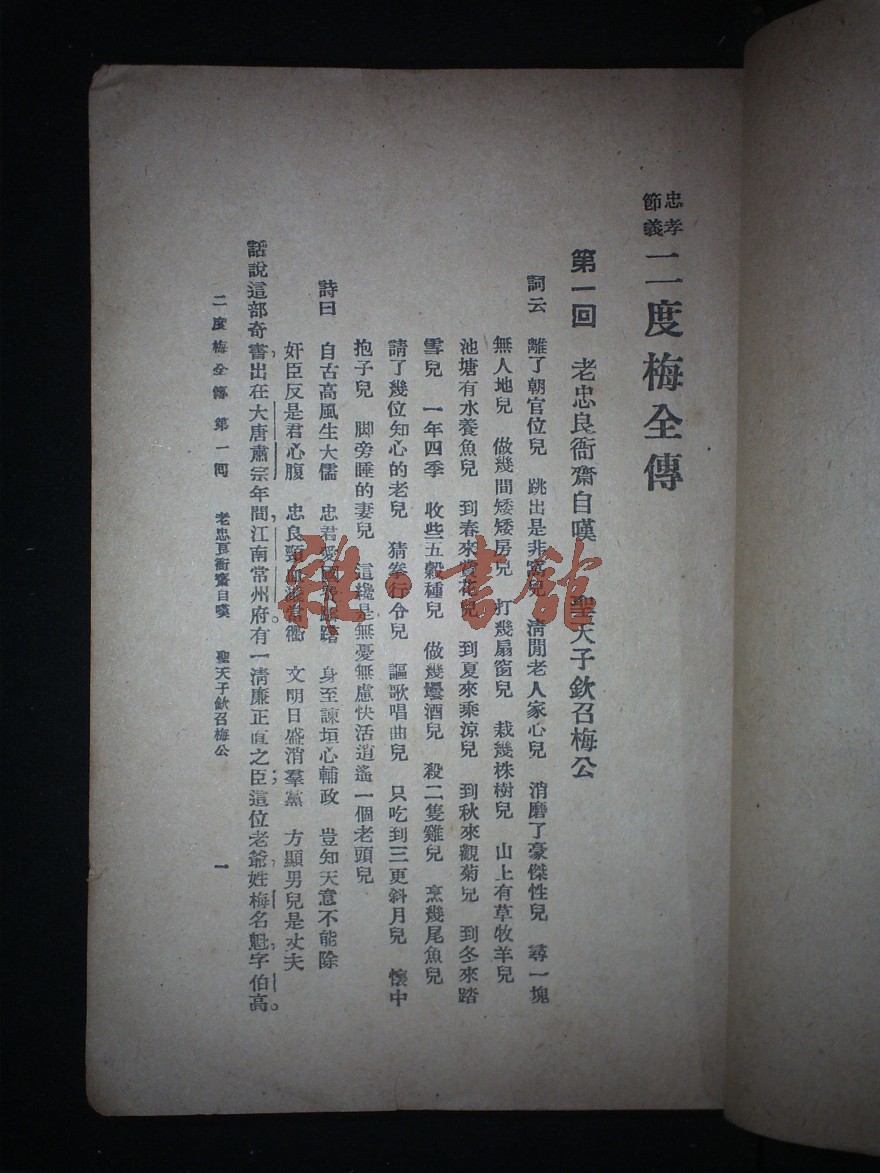 忠孝
節義
二度梅全傳
第一回 老忠良衙齋自嘆 聖天子欽召梅公
詞云 離了朝官位兒 跳出是非窩兒 清閒老人家心兒 消磨了豪傑性兒 尋一塊
無人地兒 做幾間矮矮房兒 打幾扇窗兒 栽幾株樹兒 山上有草牧羊兒
池塘有水養魚兒 到春來賞花兒 到夏來乘涼兒 到秋來觀菊兒 到冬來踏
雪兒 一年四季 收些五穀種兒 做幾罎酒兒 殺二隻雞兒 烹幾尾魚兒
請了幾位知心的老兒 猜拳行令兒 謳歌唱曲兒 只吃到三更斜月兒 懷中
抱子兒 脚旁睡的妻兒 這纔是無憂無慮快活逍遙一個老頭兒
詩曰 自古高風生大儒 忠君愛國 身至諫垣心輔政 豈知天意不能除
奸臣反是君心腹 忠良頸血 當衢 文明日盛消羣黨 方顯男兒是丈夫
話說這部奇書,出在大唐肅宗年間。江南常州府有一清廉正直之臣;這位老爺,姓梅,名魁,字伯高。
二度梅全傳 第一回 老忠良衙齋自嘆 聖天子欽召梅公 一
雅·書館